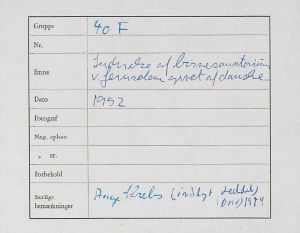 Gruppe 40 F
Nr.
Emne Indvielse af børnesanatorium
v. Jerusalem givet af danske
Dato 1952
Fotograf
Neg. opbev.
" nr.
Forbehold
Særlige Aage Krebs (indbgt seddel
bemærkninger 1974